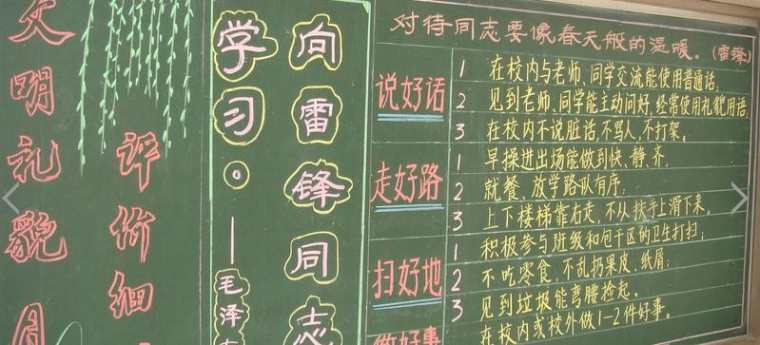 文明礼貌月
评价细
向雷锋同志
学习。—毛泽东
对待同志要像春天般的温暖。(雷锋)
说好话
1 在校内与老师、同学交流能使用普通话。
2 见到老师、同学能主动问好,经常使用礼貌用语。
3 在校内不说脏话、不骂人、不打架。
走好路
1 早操进出场能做到快、静、齐。
2 就餐、放学路队有序。
3 上下楼梯靠右走,不从扶手上滑下来。
扫好地
1 积极参与班级和包干区的卫生打扫;
2 不吃零食、不乱扔果皮、纸屑;
3 见到垃圾能弯腰捡起。
做好事
在校内或校外做1-2件好事。